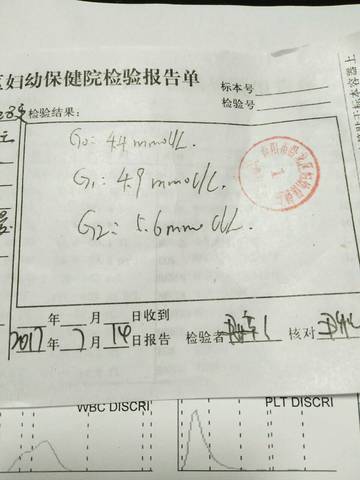 区妇幼保健院检验报告单
标本号
检验号
检验结果:
G0: 4.4 mmol/L.
G1: 4.9 mmol/L.
G2: 5.6 mmol/L.
年 月 日收到
2017年7月14日报告 检验者 核对
WBC DISCRI PLT DISCRI